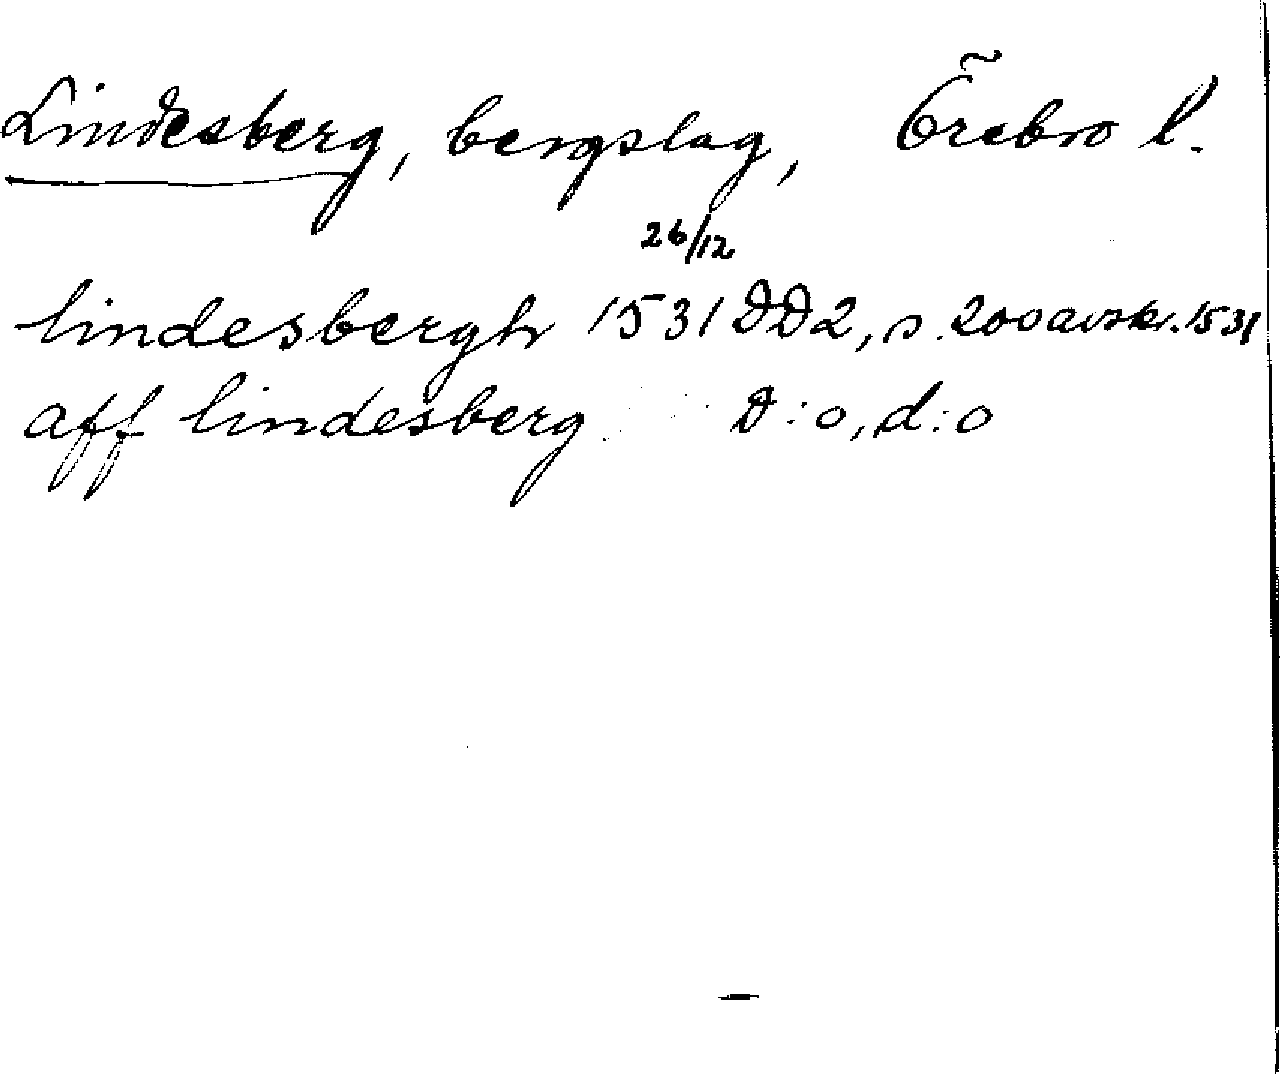 Lindesberg, bergslag, Örebro l.
26/12
lindesbergh 1531 DD2, s. 200 avskr. 1531
aff lindesberg D:o, d:o